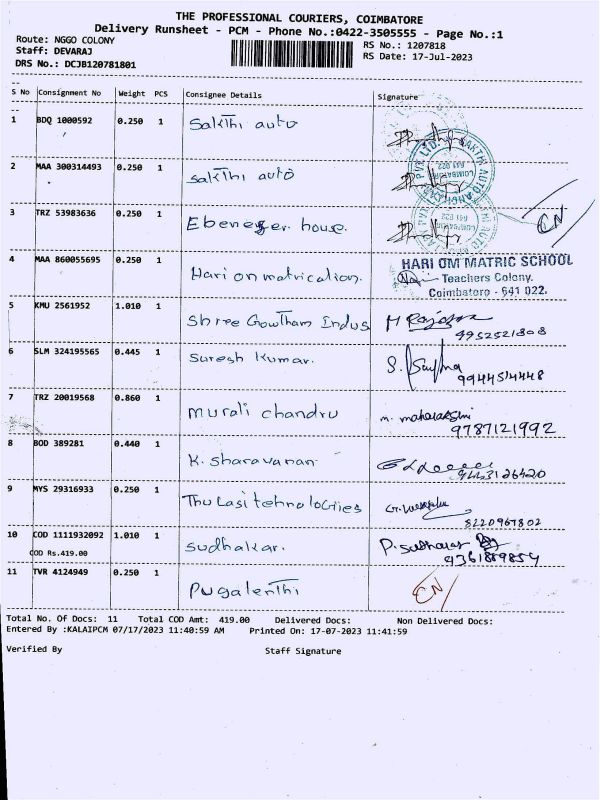 THE PROFESSIONAL COURIERS, COIMBATORE
Delivery Runsheet - PCM - Phone No.:0422-3505555 - Page No.:1
Route: NGGO COLONY
RS No.: 1207818
Staff: DEVARAJ
RS Date: 17-Jul-2023
DRS No.: DCJB120781801
S No Consignment No Weight PCS Consignee Details Signature
1 BDQ 1000592 0.250 1 Sakthi auto
2 MAA 300314493 0.250 1 Sakthi auto
3 TRZ 53983636 0.250 1 Ebenezer house. CN
4 MAA 860055695 0.250 1 Hari on matrication. HARI OM MATRIC SCHOOL
Teachers Colony.
Coimbatore - 641 022.
5 KMU 2561952 1.010 1 Shree Gowtham Indus M Rajagopa
9952521808
6 SLM 324195565 0.445 1 Suresh Kumar.
9944514448
7 TRZ 20019568 0.860 1 Murali chandru m. mahalakshmi
9787121992
8 BOD 389281 0.440 1 K. Sharavanan
9443126420
9 MYS 29316933 0.250 1 Thulasi tehnologiies
8220967802
10 COD 1111932092 1.010 1 Sudhakar. P. Sudhakar
COD Rs.419.00 9361889854
11 TVR 4124949 0.250 1 Pugalenthi CN
Total No. Of Docs: 11 Total COD Amt: 419.00 Delivered Docs: Non Delivered Docs:
Entered By :KALAIPCM 07/17/2023 11:40:59 AM Printed On: 17-07-2023 11:41:59
Verified By Staff Signature